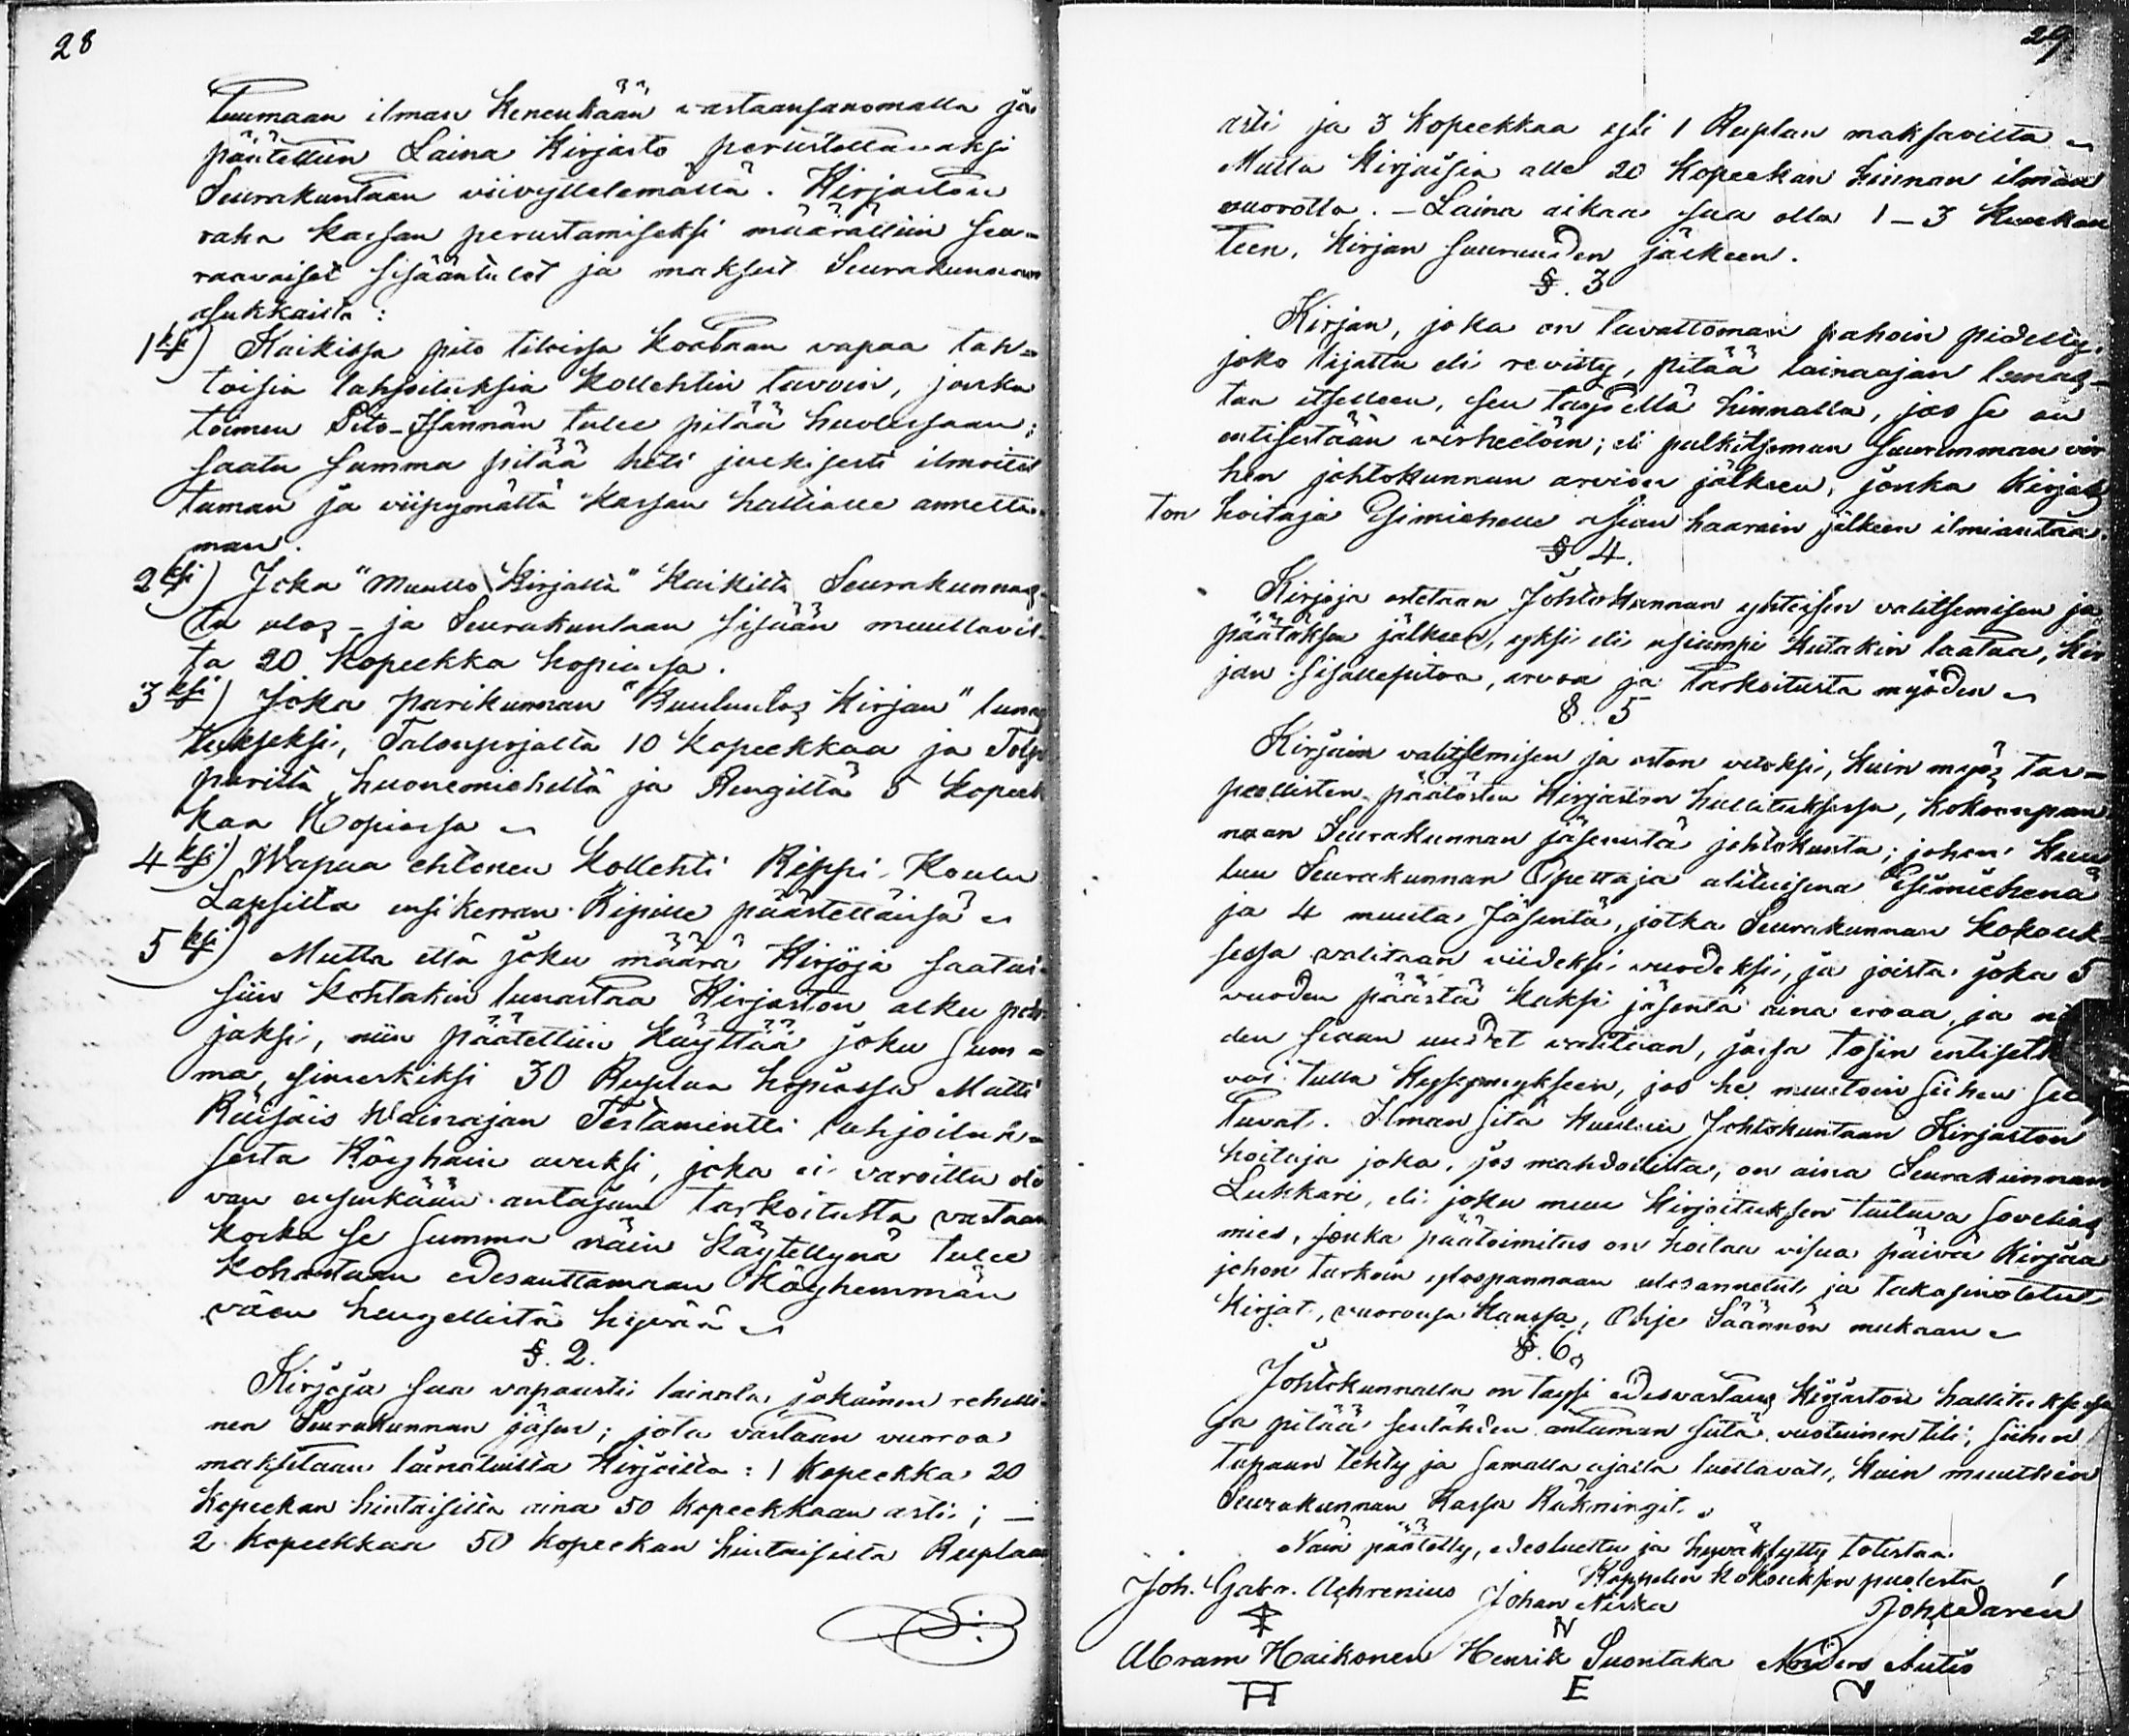 28
tuumaan ilman Kenenkään vastaansanomatta ja
päätettiin Laina Kirjasto perustettavaksi
Seurakuntaan viivyttelemättä. Kirjaston
raha kassan perustamiseksi määrättiin seu-
raavaiset sisääntulot ja maksut Seurakunnan
asukkaista:
1ksi) Kaikissa pito tiloissa Kootaan vapaa tah-
toisia lahjoituksia Kollehtin tavoin, jonka
toimen Pito-Isännän tulee pitää huolessaan;
saatu summa pitää heti julkisesti ilmoitet
taman ja viipymättä Kassan haltialle annetta-
man.
2ksi) Joka "Muutto Kirjalta" Kaikilta Seurakunnas-
ta ulos- ja Seurakuntaan sisään muuttavil-
ta 20 Kopeekka hopiassa.
3ksi) Joka parikunnan "Kuulutos Kirjan" lunas
tukseksi, Talonpojalta 10 Kopeekkaa ja Torp
parilta, huonemieheltä ja Rengiltä 5 Kopeek
kaa Hopiassa
4ksi) Wapaa ehtonen Kollehti Rippi-Koulu
Lapsilta ensikerran Ripille päästettäissä
5ksi) Mutta että joku määrä Kirjoja saatai-
siin Kohtakin lunastaa Kirjaston alku poh-
jaksi, niin päätettiin Käyttää joku sum-
ma, esimerkiksi 30 Ruplaa hopiassa Matti
Räisäis Wainajan Testamentti lahjoituk-
sesta Köyhäin avuksi, joka ei varoittu ole
van ensinkään antajan tarkoitusta vastaan
Koska se summa näin Käytettynä tulee
Kohastaan edesauttamaan Köyhemmän
väen hengellistä hyvää
§. 2.
Kirjoja saa vapaasti lainata jokainen rehelli-
nen Seurakunnan jäsen; jota vastaan vuoroa
maksetaan lainatuista Kirjoista: 1 Kopeekka 20
Kopeekan hintaisilta aina 50 Kopeekkaan asti; —
2 Kopeekkaa 50 Kopeekan hintaisilta Ruplaan
29
asti ja 3 Kopeekkaa yli 1 Ruplan maksavilta
Mutta Kirjaisia alle 20 Kopeekan hinnan ilman
vuorotta. – Laina aikaa saa olla 1–3 Kuukau
teen, Kirjan suuruuden jälkeen.
§. 3
Kirjan, joka on tavattoman pahoin pidelty,
joko lijattu eli revitty, pitää lainaajan lunas-
taa itselleen, sen täydellä hinnalla, jos se on
entisestään virheetöin; eli palkitseman suuremman vir
hen johtokunnan arvion jälkeen, jonka Kirjas
ton hoitaja Esimiehelle asian haarain jälkeen ilmiantaa.
§ 4.
Kirjoja ostetaan Johtokunnan yhteisen valitsemisen ja
päätöksen jälkeen, yksi eli usiampi Kutakin laatua, Kir
jan sisällepitoa, arvoa ja tarkoitusta myöden
§. 5
Kirjain valitsemisen ja oston vuoksi, Kuin myös tar-
peellisten päätösten Kirjaston hallituksessa, Kokoonpan
naan Seurakunnan jäsenistä johtokunta; johon Kuu
luu Seurakunnan Opettaja alituisena Esimiehenä
ja 4 muuta Jäsentä, jotka Seurakunnan Kokouk-
sessa valitaan viideksi vuodeksi, ja joista joka 5
vuoden päästä Kaksi jäsentä aina eroaa, ja
den siaan uudet valitaan, jossa tosin entisetkin
voi tulla Kysymykseen, jos he muutoin siihen
tuvat. Ilman sitä Kuuluu Johtokuntaan Kirjaston
hoitaja joka, jos mahdollista, on aina Seurakunnan
Lukkari, eli joku muu Kirjoituksen taitava sovelias
mies, jonka päätoimitus on hoitaa visua päivä Kirjaa
johon tarkoin ylöspannaan ulosannetut ja takasinotetut
Kirjat, vuoronsa Kanssa, Ohje Säännön mukaan
§. 6.
Johtokunnalla on täysi edesvastaus Kirjaston hallituksessa
ja pitää sentähden antaman siitä vuotuinen tili, siihen
tapaan tehty ja samalla ajalla luettavat, Kuin muutkin
Seurakunnan Kassa Räkningit.
Näin päätetty, edesluettu ja hyväksytty todistaa
Kappelin Kokouksen puolesta
Joh. Gabr. Achrenius Johan Niska Joh. Edarén
N
Abram Haikonen Henrik Suontaka Anders Autio
H E